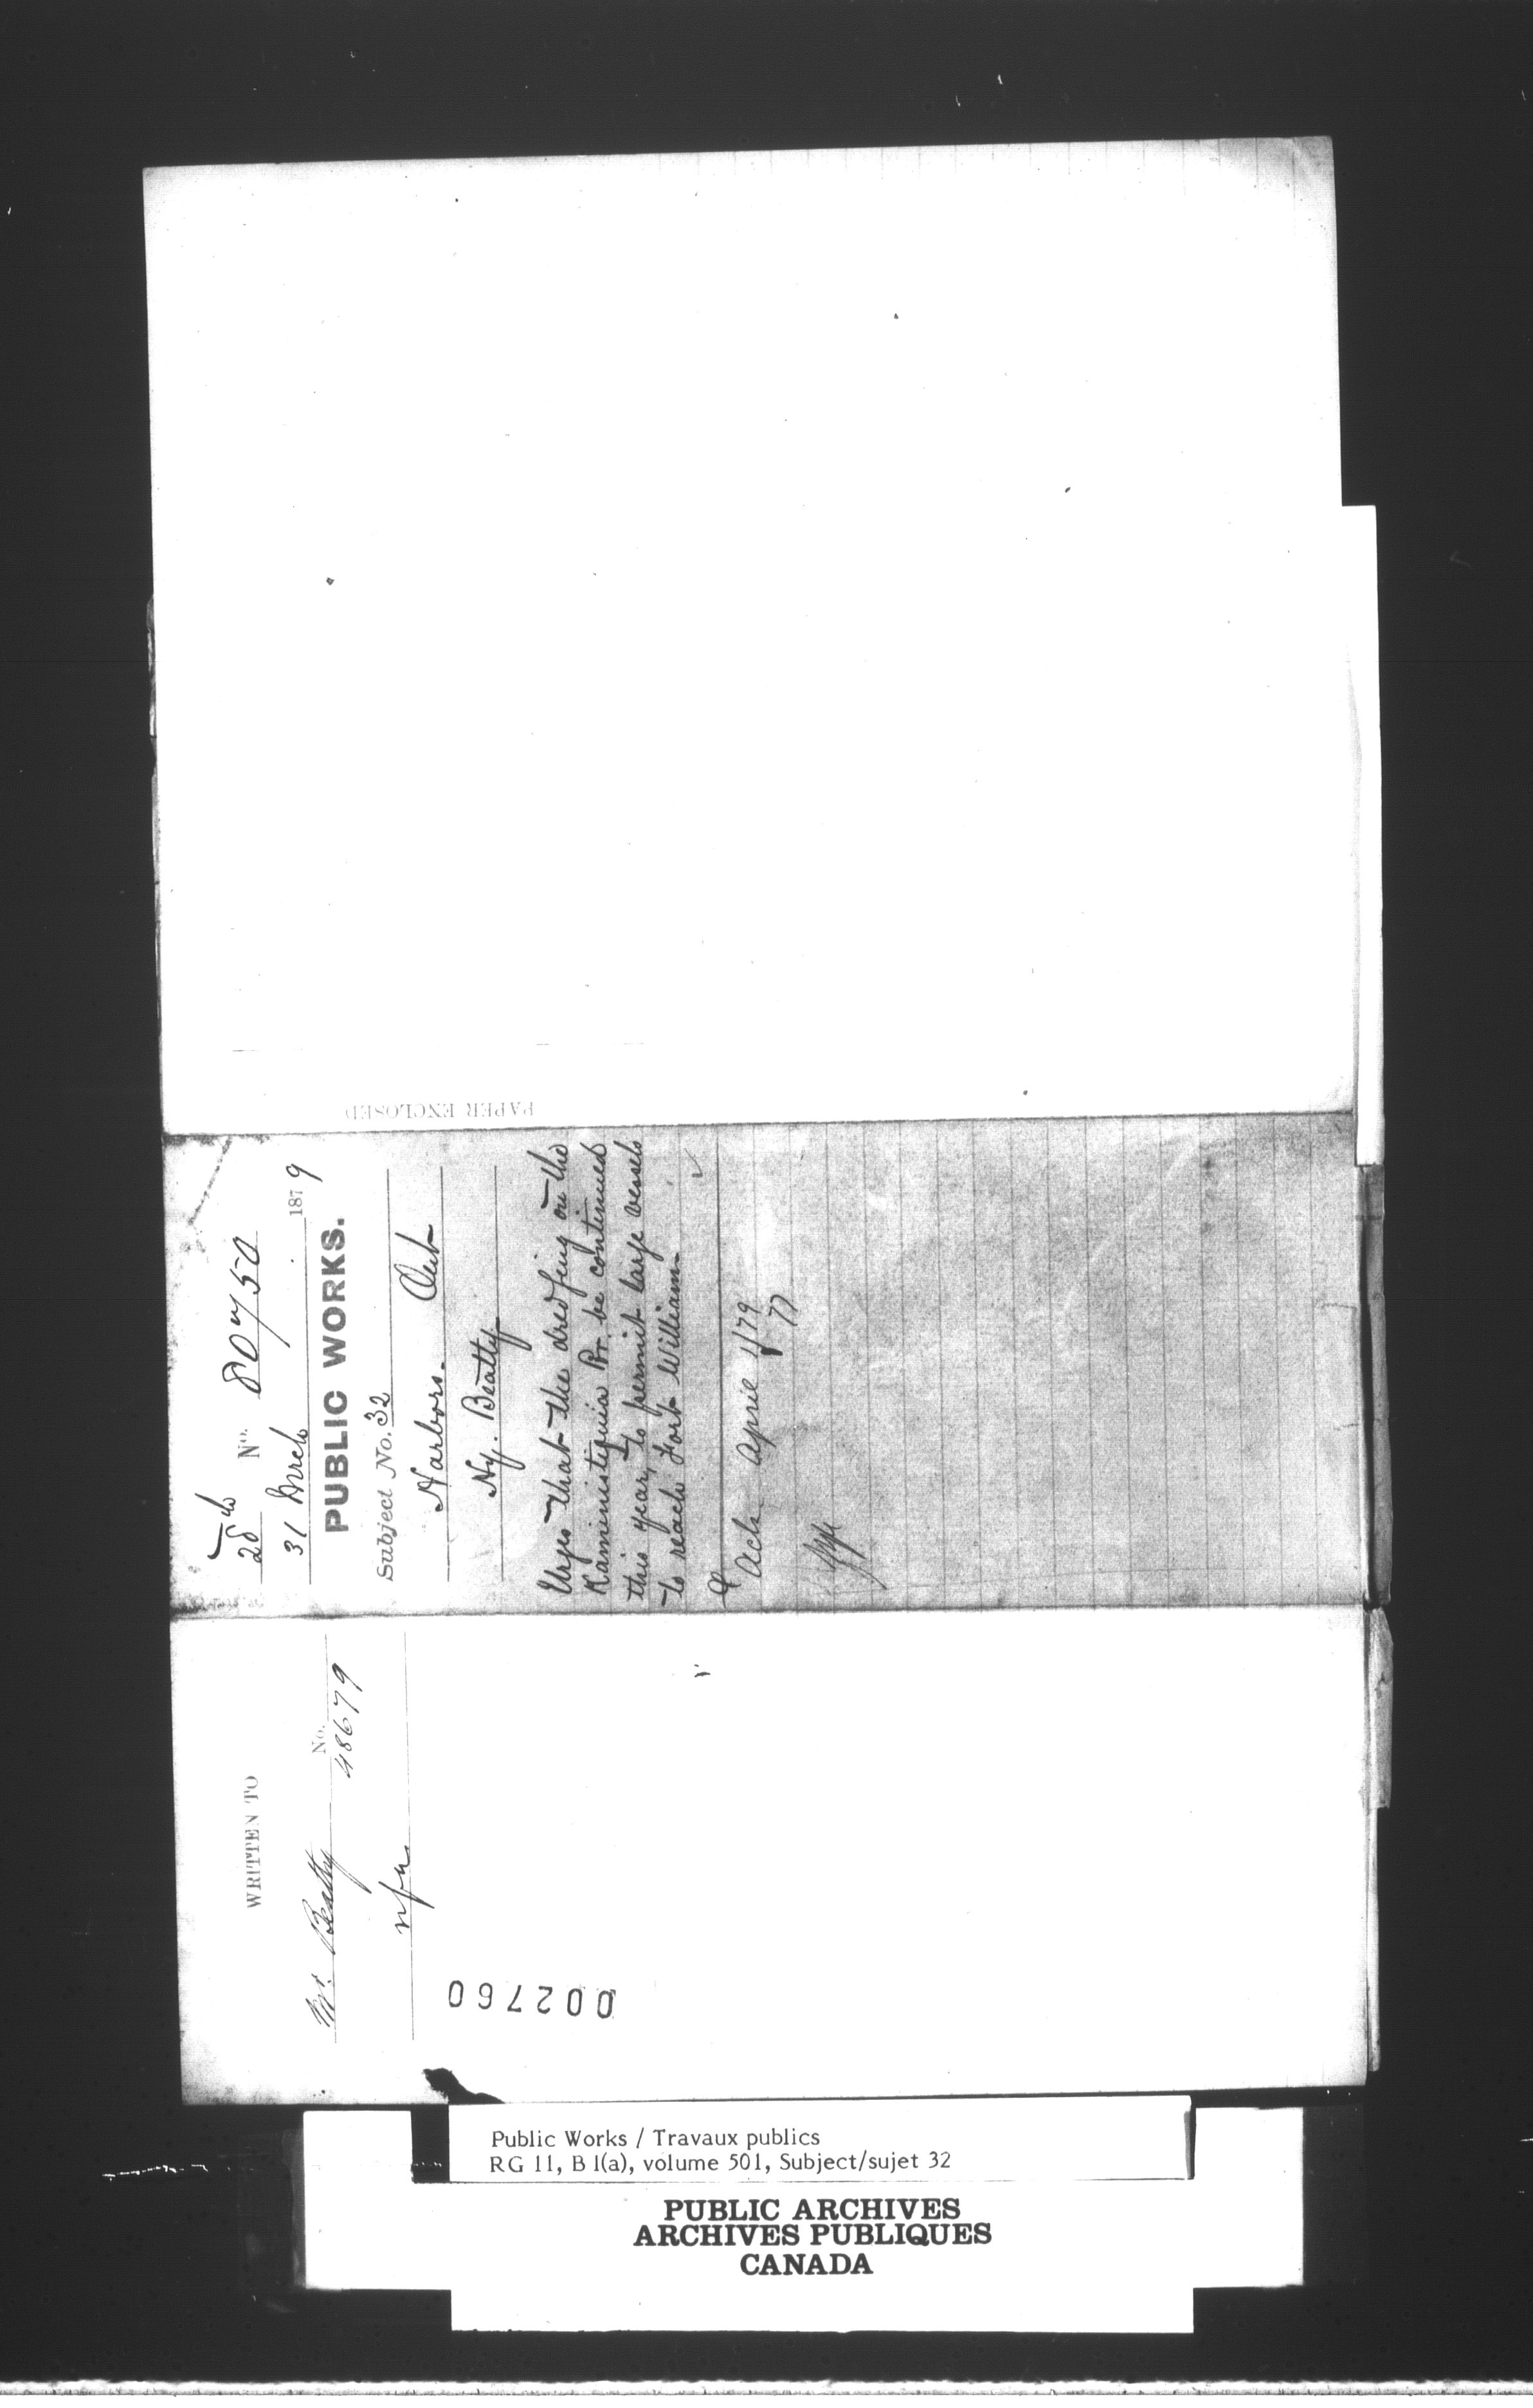 PAPER ENCLOSED
28 No. 80750
31 March 1879
PUBLIC WORKS.
Subject No. 32
Harbors. Ont
Hy. Beatty
Urges that the dredging on the
Kaministiquia Rr. be continued
this year, to permit large vessels
to reach Fort William
Ack April 1/79
WRITTEN TO
No.
Mr. Beatty 48679
002760
Public Works / Travaux publics
RG 11, B 1(a), volume 501, Subject/sujet 32
PUBLIC ARCHIVES
ARCHIVES PUBLIQUES
CANADA